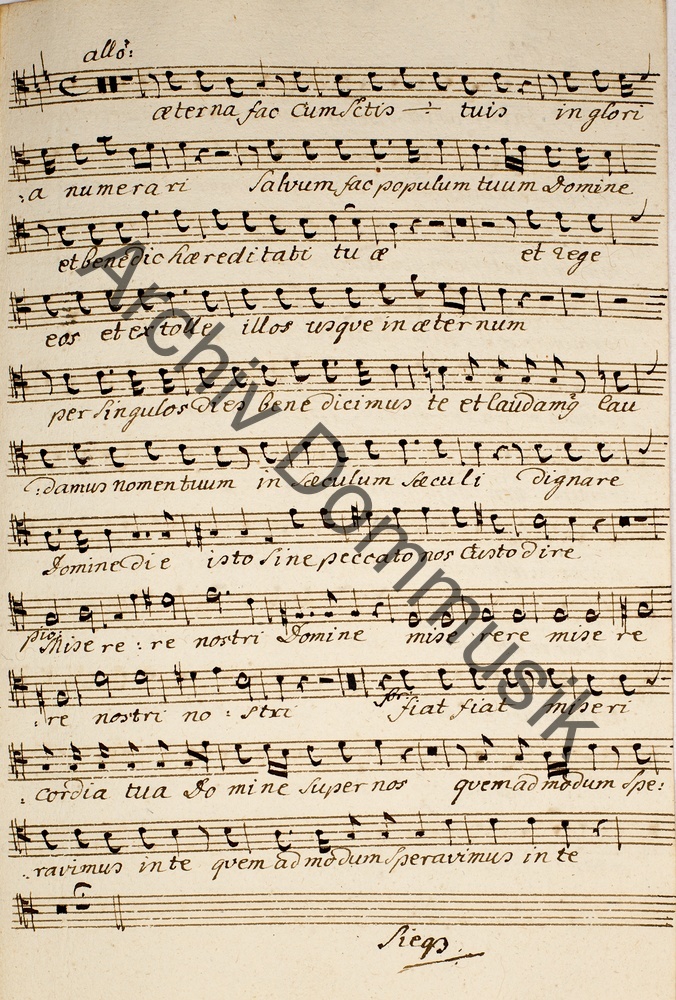 allo:
æterna fac Cum Sctis ÷ tuis in glori
:a numerari Salvum fac populum tuum Domine
et benedic hæreditati tu æ et rege
eos et extolle illos usque in æternum
per Singulos Dies benedicimus te et laudamg lau
:damus nomen tuum in sæculum sæculi dignare
Domine die isto Sine peccato nos Custodire
pio: Misere re : re nostri Domine mise rere mise re
: re nostri no : stri for: fiat fiat miseri
: cordia tua Do mine super nos quemadmodum Spe:
:ravimus in te quem admodum Speravimus in te
Archiv Dommusik